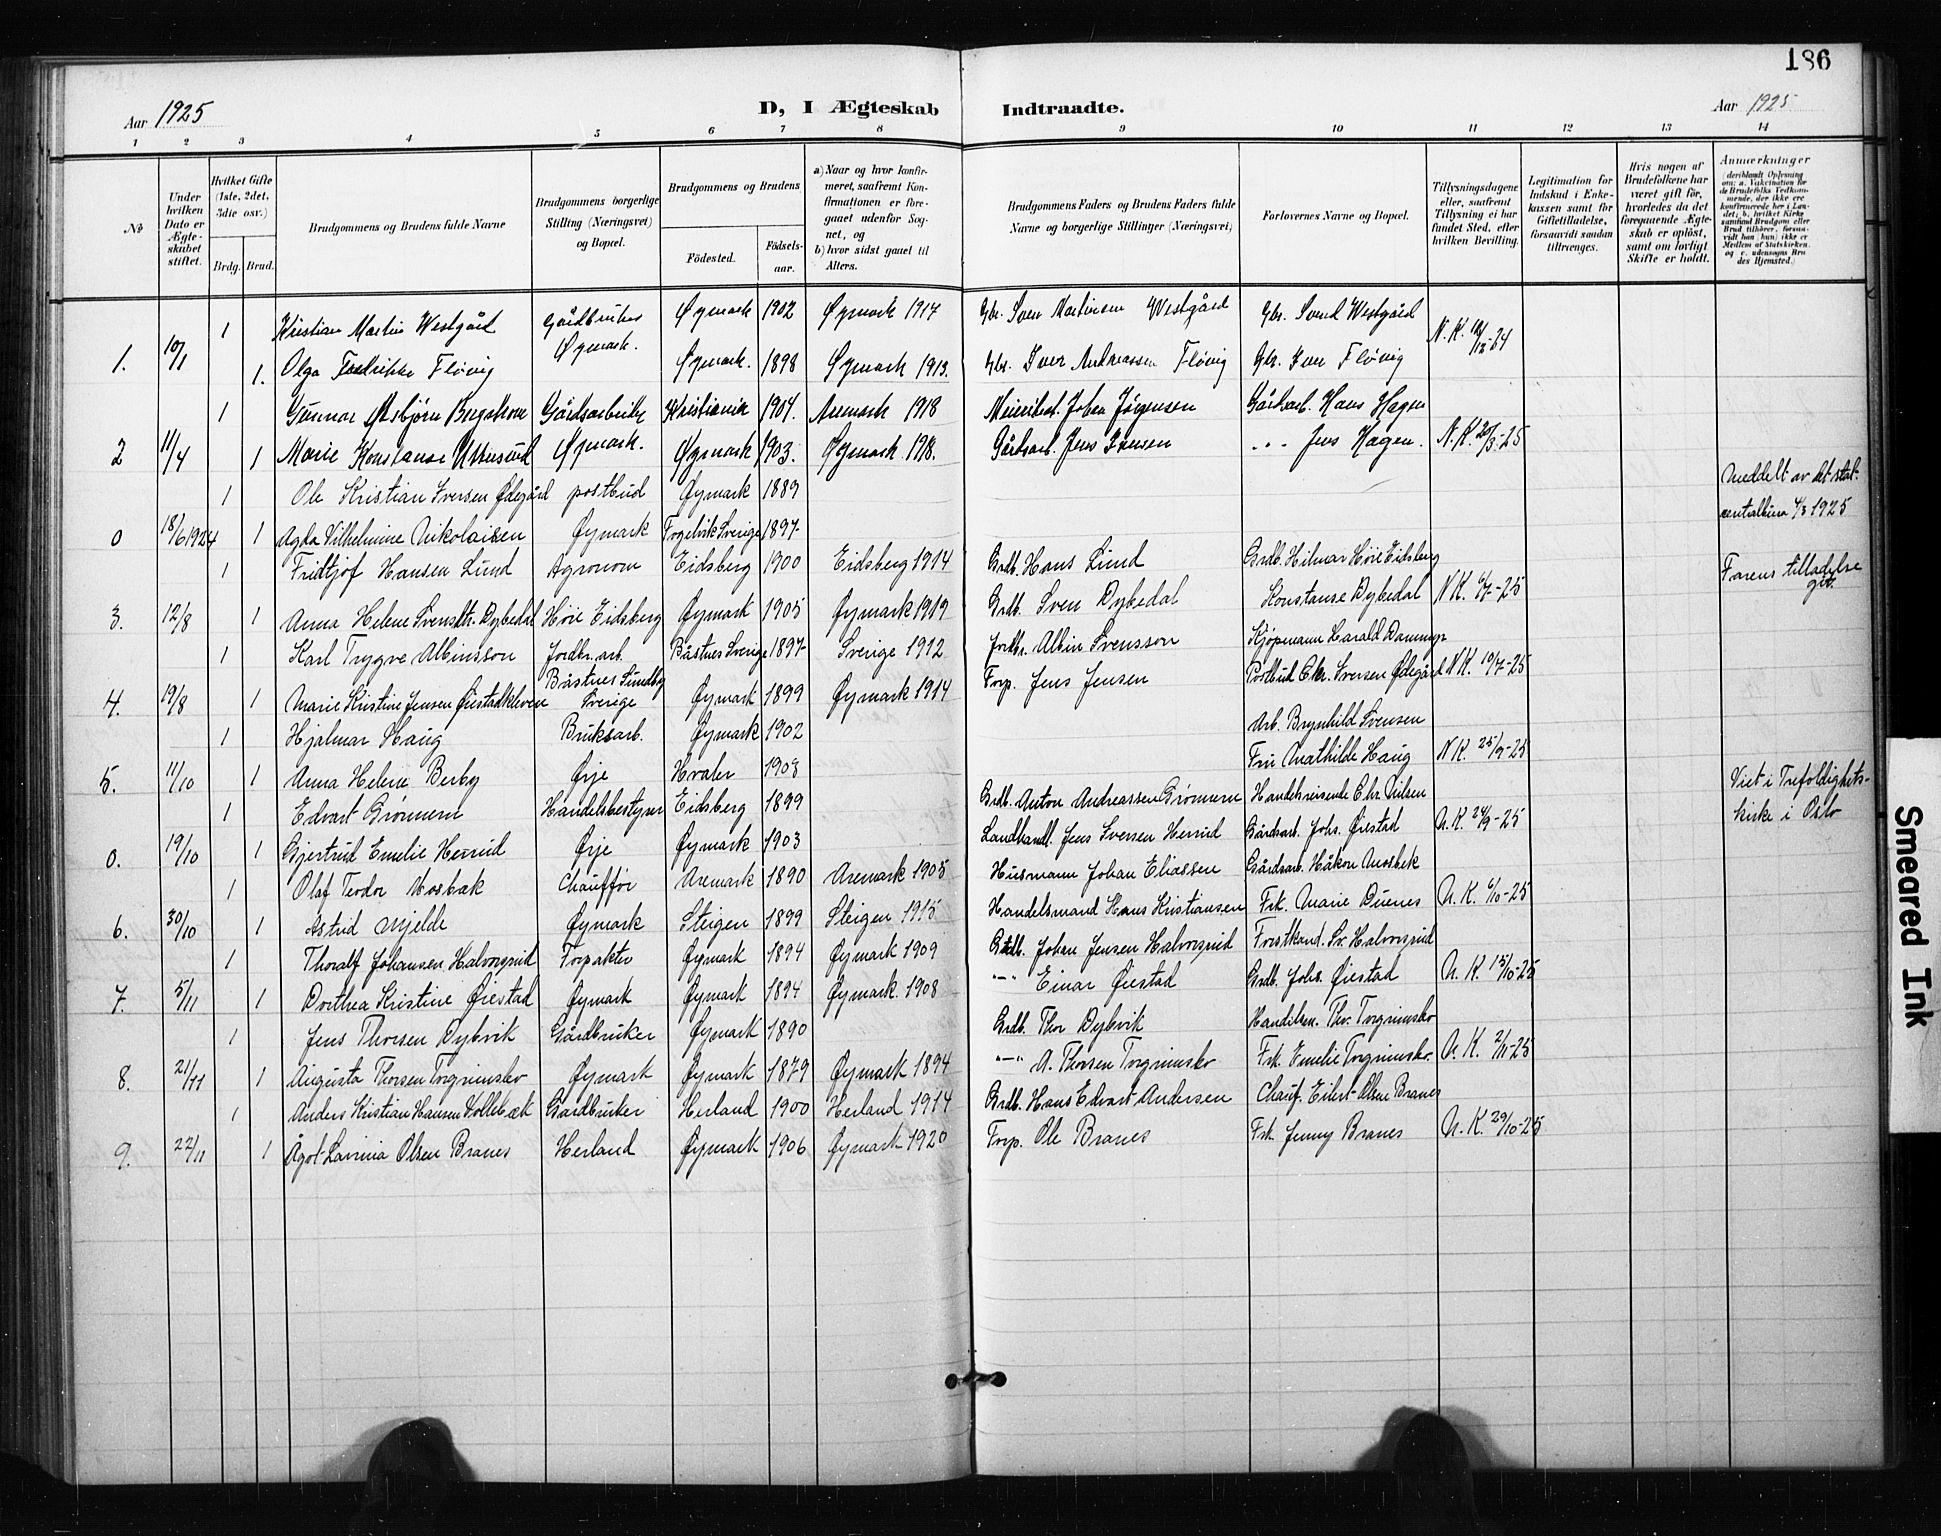 186
Aar 1925
D, I Ægteskab Indtraadte.
Aar 1925
1 2 3 4 5 6 7 8 9 10 11 12 13 14
№
Under hvilken Dato er Ægteskabet stiftet.
Hvilket Gifte (1ste, 2det, 3die osv.)
Brdg. Brud.
Brudgommens og Brudens fulde Navne
Brudgommens borgerlige Stilling (Næringsvei) og Bopæl.
Brudgommens og Brudens
Fødested.
Fødselsaar.
a) Naar og hvor konfirmeret, saafremt Konfirmationen er foregaaet udenfor Sognet, og
b) hvor sidst gaaet til Alters.
Brudgommens Faders og Brudens Faders fulde Navne og borgerlige Stillinger (Næringsvei)
Forlovernes Navne og Bopæl.
Tillysningsdagene eller, saafremt Tillysning ei har fundet Sted, efter hvilken Bevilling.
Legitimation for Indskud i Enkekassen samt for Giftetilladelse, forsaavidt saadan tiltrænges.
Hvis nogen af Brudefolkene har været gift før, hvorledes da det foregaaende Ægteskab er opløst, samt om lovligt Skifte er holdt.
Anmerkninger (deriblandt Oplysning om: a. Vakcination for de Brudefolks Vedkommende, der ikke ere konfirmerede her i Landet; b. hvilket Kirkesamfund Brudgom eller Brud tilhører, forsaavidt han (hun) ikke er Medlem af Statskirken, og c. udensogns Brudes Hjemsted.)
1 Kristian Martin Westgård Gårdbruker Øymark 1902 Øymark 1917 Gbr. Sven Martinsen Westgård Gbr. Svend Westgård
1. 10/1 1. Olga Fredrikke Fløvig Øymark. Øymark. 1898 Øymark 1913. Gbr. Iver Andreassen Fløvig Gbr. Iver Fløvig N. K.
1 Gunnar Asbjørn Kristiania 1904. Aremark 1918 Johan Jørgensen Gårdarb. Hans Hagen
2 11/4 1 Marie Konstanse Øymark. Øymark 1903. Øymark 1918. Gårdsarb. Jens " " Jens Hagen. N. K. 20/3-25
1 Ole Kristian Iversen Ødegård postbud Øymark 1889 Meddelt av det stat.
0 18/6 1924 1 Agda Vilhelmine Nikolaisen Øymark Sverige 1897 1925
1 Fridtjof Hansen Lund Agronom Eidsberg 1900 Eidsberg 1914 Grdb. Hans Lund Grdb. Hilmar Høie Eidsberg Farens tilladelse git
3. 12/8 1 Anna Helene Svensdtr. Dybedal Høie Eidsberg Øymark 1905 Øymark 1919 Grdb. Sven Dybedal Konstanse Dybedal N K. 6/7-25
1 Karl Trygve Albinsson Jordbr. arb. Båstnes Sverige 1897 Sverige 1912 Jordbr. Albin Svensson Kjøpmann Harald Dammyr
4. 19/8 1 Marie Kristine Jensen Øiestadkleven Båstnes Sundby Sverige Øymark 1899 Øymark 1914 Forp. Jens Jensen Postbud Chr. Iversen Ødegård N K. 10/7-25
1 Hjalmar Haug Bruksarb. Øymark 1902 Arb. Brynhild Svensen
5. 11/10 1 Anna Helene Berby Ørje Hvaler 1903 Fru Mathilde Haug N K. 25/9-25
1 Edvart Grønnern Handelsbestyrer Eidsberg 1899 Grdb. Anton Andreassen Grønnern Handelsreisende Chr. Nilsen Viet i Trefoldighets-
0. 19/10 1 Gjertrud Emelie Herrud Ørje Øymark 1903 Landhandl. Jens Iversen Herrud Gårdsarb. Johs. Øiestad N. K. 24/9-25 kirke i Oslo
1 Olaf Teodor Mosbæk Chauffør Aremark 1890 Aremark 1905 Husmann Johan Eliassen Gårdsarb. Håkon Mosbek
6. 30/10 1 Astrid Mjelde Øymark Steigen 1899 Steigen 1915 Handelsmand Hans Kristiansen Frk. Marie Duenes N. K. 6/10-25
1 Thoralf Johansen Halvorsrud Forpakter Øymark 1894 Øymark 1909 Grdb. Johan Jensen Halvorsrud Forstkand. Sv. Halvorsrud
7. 5/11 1 Dorthea Kristine Øiestad Øymark Øymark 1894 Øymark. 1908 "—" Einar Øiestad Grdb. Johs. Øiestad N. K. 15/10-25
1 Jens Thorsen Dybvik Gårdbruker Øymark 1890 Grdb. Thor Dybvik Handelsm. Thv. Torgrimsbo
8. 21/11 1 Augusta Thorsen Torgrimsbo Øymark Øymark 1879 Øymark 1894 "—" A. Thorsen Torgrimsbo Frk. Emelie Torgrimsbo. N. K. 2/11-25
1 Anders Kristian Hansen Kollebæk Gårdbruker Herland 1900 Herland 1914 Grdb. Hans Edvart Andersen Chauf. Eilert Olsen Branes
9. 22/11 1 Ågot Lavinia Olsen Branes Herland Øymark 1906 Øymark 1920 Forp. Ole Branes Frk. Jenny Branes N. K. 29/10-25
Smeared Ink